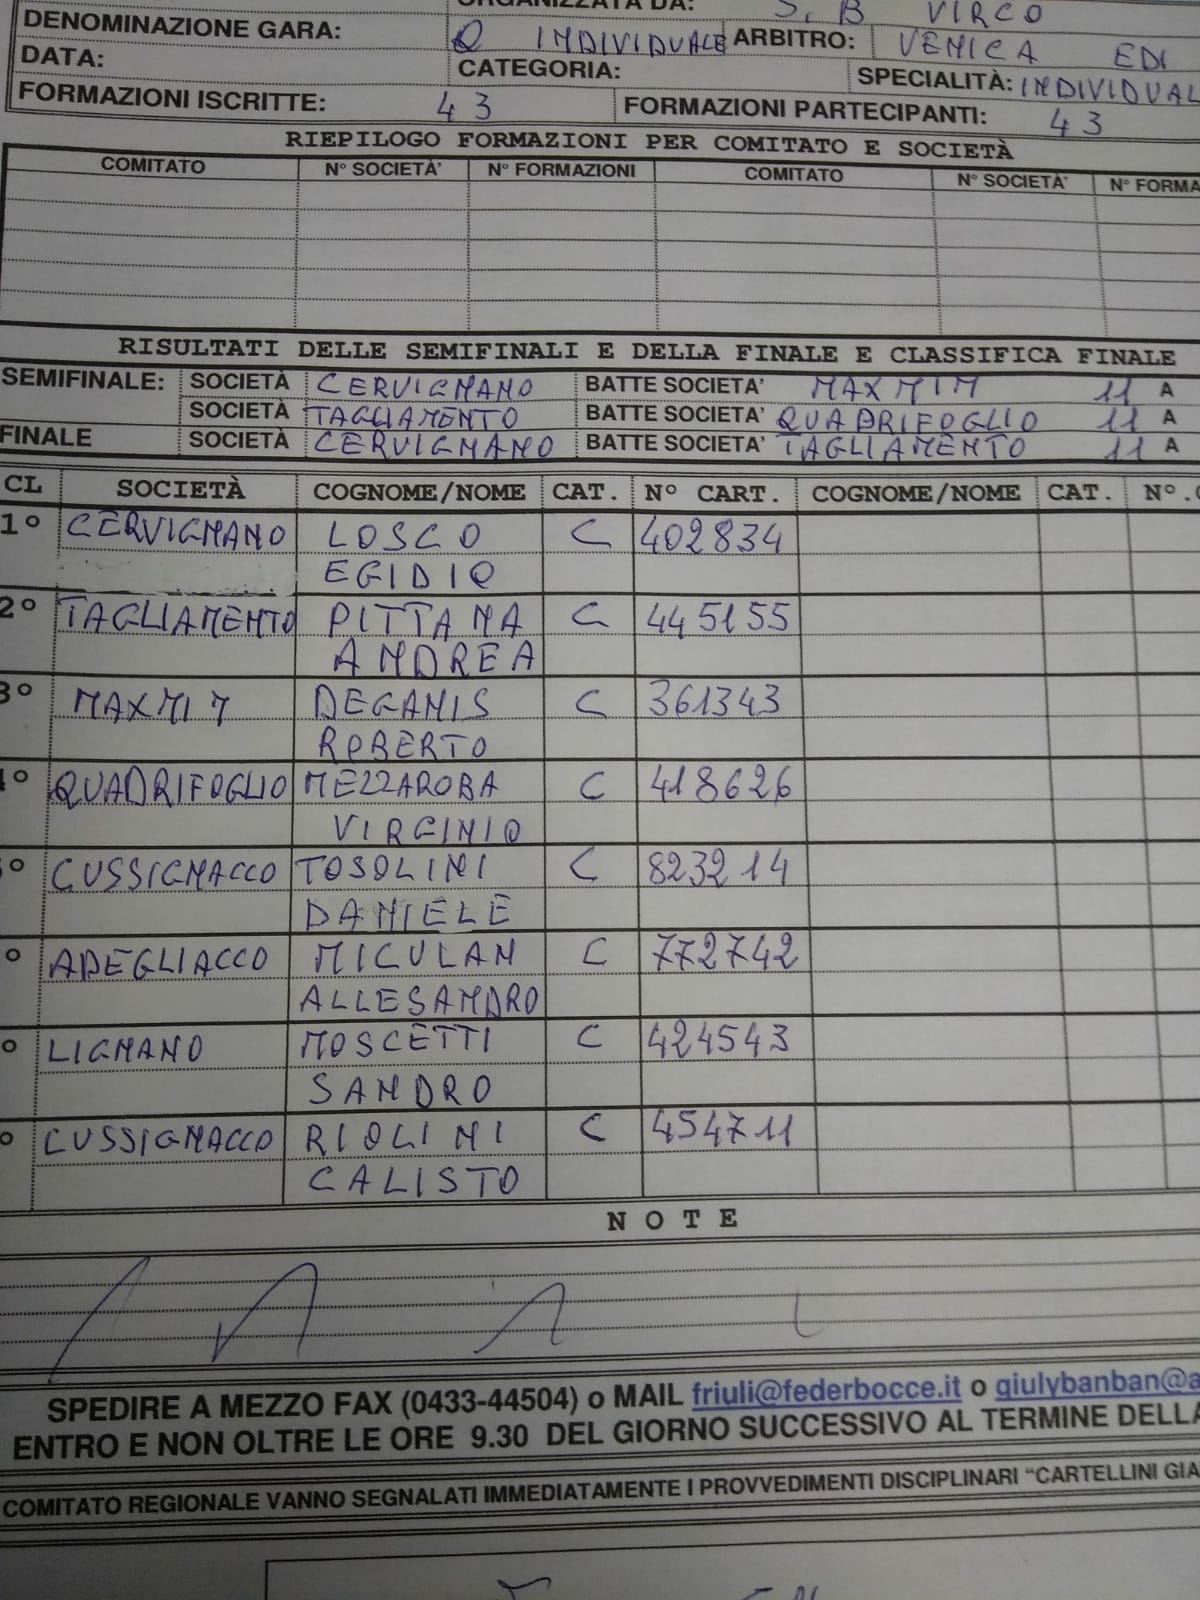 ORGANIZZATA DA: S. B VIRCO
DENOMINAZIONE GARA: Q INDIVIDUALE ARBITRO: VENICA EDI
DATA: CATEGORIA: SPECIALITÀ: INDIVIDUAL
FORMAZIONI ISCRITTE: 43 FORMAZIONI PARTECIPANTI: 43
RIEPILOGO FORMAZIONI PER COMITATO E SOCIETÀ
COMITATO N° SOCIETÀ' N° FORMAZIONI COMITATO N° SOCIETÀ' N° FORMA
RISULTATI DELLE SEMIFINALI E DELLA FINALE E CLASSIFICA FINALE
SEMIFINALE: SOCIETÀ CERVIGNANO BATTE SOCIETA' MAXMIM 11 A
SOCIETÀ TAGLIAMENTO BATTE SOCIETA' QUADRIFOGLIO 11 A
FINALE SOCIETÀ CERVIGNANO BATTE SOCIETA' TAGLIAMENTO 11 A
CL SOCIETÀ COGNOME/NOME CAT. N° CART. COGNOME/NOME CAT. N°.
1° CERVIGNANO LOSCO C 402834
EGIDIO
2° TAGLIAMENTO PITTANA C 445155
ANDREA
3° MAXMIM DEGANIS C 361343
ROBERTO
° QUADRIFOGLIO MEZZAROBA C 418626
VIRGINIO
° CUSSIGNACCO TOSOLINI C 823214
DANIELE
° ADEGLIACCO MICULAN C 772742
ALLESANDRO
° LIGNANO MOSCETTI C 424543
SANDRO
° CUSSIGNACCO RIOLINI C 454711
CALISTO
NOTE
SPEDIRE A MEZZO FAX (0433-44504) o MAIL friuli@federbocce.it o giulybanban@a
ENTRO E NON OLTRE LE ORE 9.30 DEL GIORNO SUCCESSIVO AL TERMINE DELLA
COMITATO REGIONALE VANNO SEGNALATI IMMEDIATAMENTE I PROVVEDIMENTI DISCIPLINARI “CARTELLINI GIA